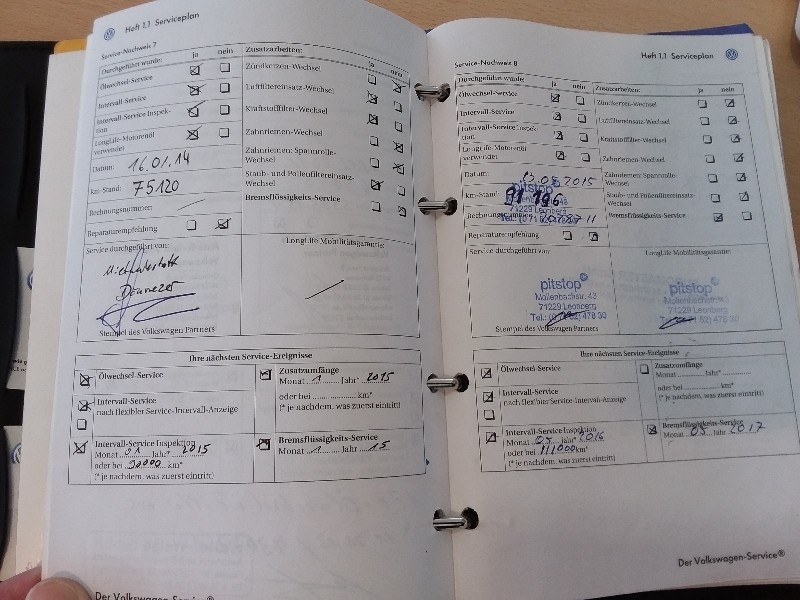 Heft 1.1 Serviceplan
Service-Nachweis 7
Durchgeführt wurde: ja nein
Ölwechsel-Service
Intervall-Service
Intervall-Service Inspek-
tion
LongLife-Motorenöl
verwendet
Datum: 16.01.14
km-Stand: 75120
Rechnungsnummer:
Reparaturempfehlung
Zusatzarbeiten: ja nein
Zündkerzen-Wechsel
Luftfiltereinsatz-Wechsel
Kraftstofffilter-Wechsel
Zahnriemen-Wechsel
Zahnriemen: Spannrolle-
Wechsel
Staub- und Pollenfiltereinsatz-
Wechsel
Bremsflüssigkeits-Service
Service durchgeführt von:
Stempel des Volkswagen Partners
LongLife Mobilitätsgarantie:
Ihre nächsten Service-Ereignisse
Ölwechsel-Service
Intervall-Service
nach flexibler Service-Intervall-Anzeige
Intervall-Service Inspektion
Monat 01 Jahr* 2015
oder bei km*
(* je nachdem, was zuerst eintritt)
Zusatzumfänge
Monat 1 Jahr* 2015
oder bei km*
(* je nachdem, was zuerst eintritt)
Bremsflüssigkeits-Service
Monat 1 Jahr 15
Der Volkswagen-Service®
Heft 1.1 Serviceplan
Service-Nachweis 8
Durchgeführt wurde: ja nein
Ölwechsel-Service
Intervall-Service
Intervall-Service Inspek-
tion
LongLife-Motorenöl
verwendet
Datum: 2015
km-Stand:
Rechnungsnummer
Reparaturempfehlung
pitstop
71229 Leonberg
Zusatzarbeiten: ja nein
Zündkerzen-Wechsel
Luftfiltereinsatz-Wechsel
Kraftstofffilter-Wechsel
Zahnriemen-Wechsel
Zahnriemen: Spannrolle-
Wechsel
Staub- und Pollenfiltereinsatz-
Wechsel
Bremsflüssigkeits-Service
Service durchgeführt von:
pitstop
Mollenbachstr. 43
71229 Leonberg
Stempel des Volkswagen Partners
LongLife Mobilitätsgarantie:
pitstop
71229 Leonberg
Ihre nächsten Service-Ereignisse
Ölwechsel-Service
Intervall-Service
nach flexibler Service-Intervall-Anzeige
Intervall-Service Inspektion
Monat 05 Jahr* 2016
oder bei 111.000 km*
(* je nachdem, was zuerst eintritt)
Zusatzumfänge
Monat Jahr*
oder bei km*
(* je nachdem, was zuerst eintritt)
Bremsflüssigkeits-Service
Monat 05 Jahr 2017
Der Volkswagen-Service®